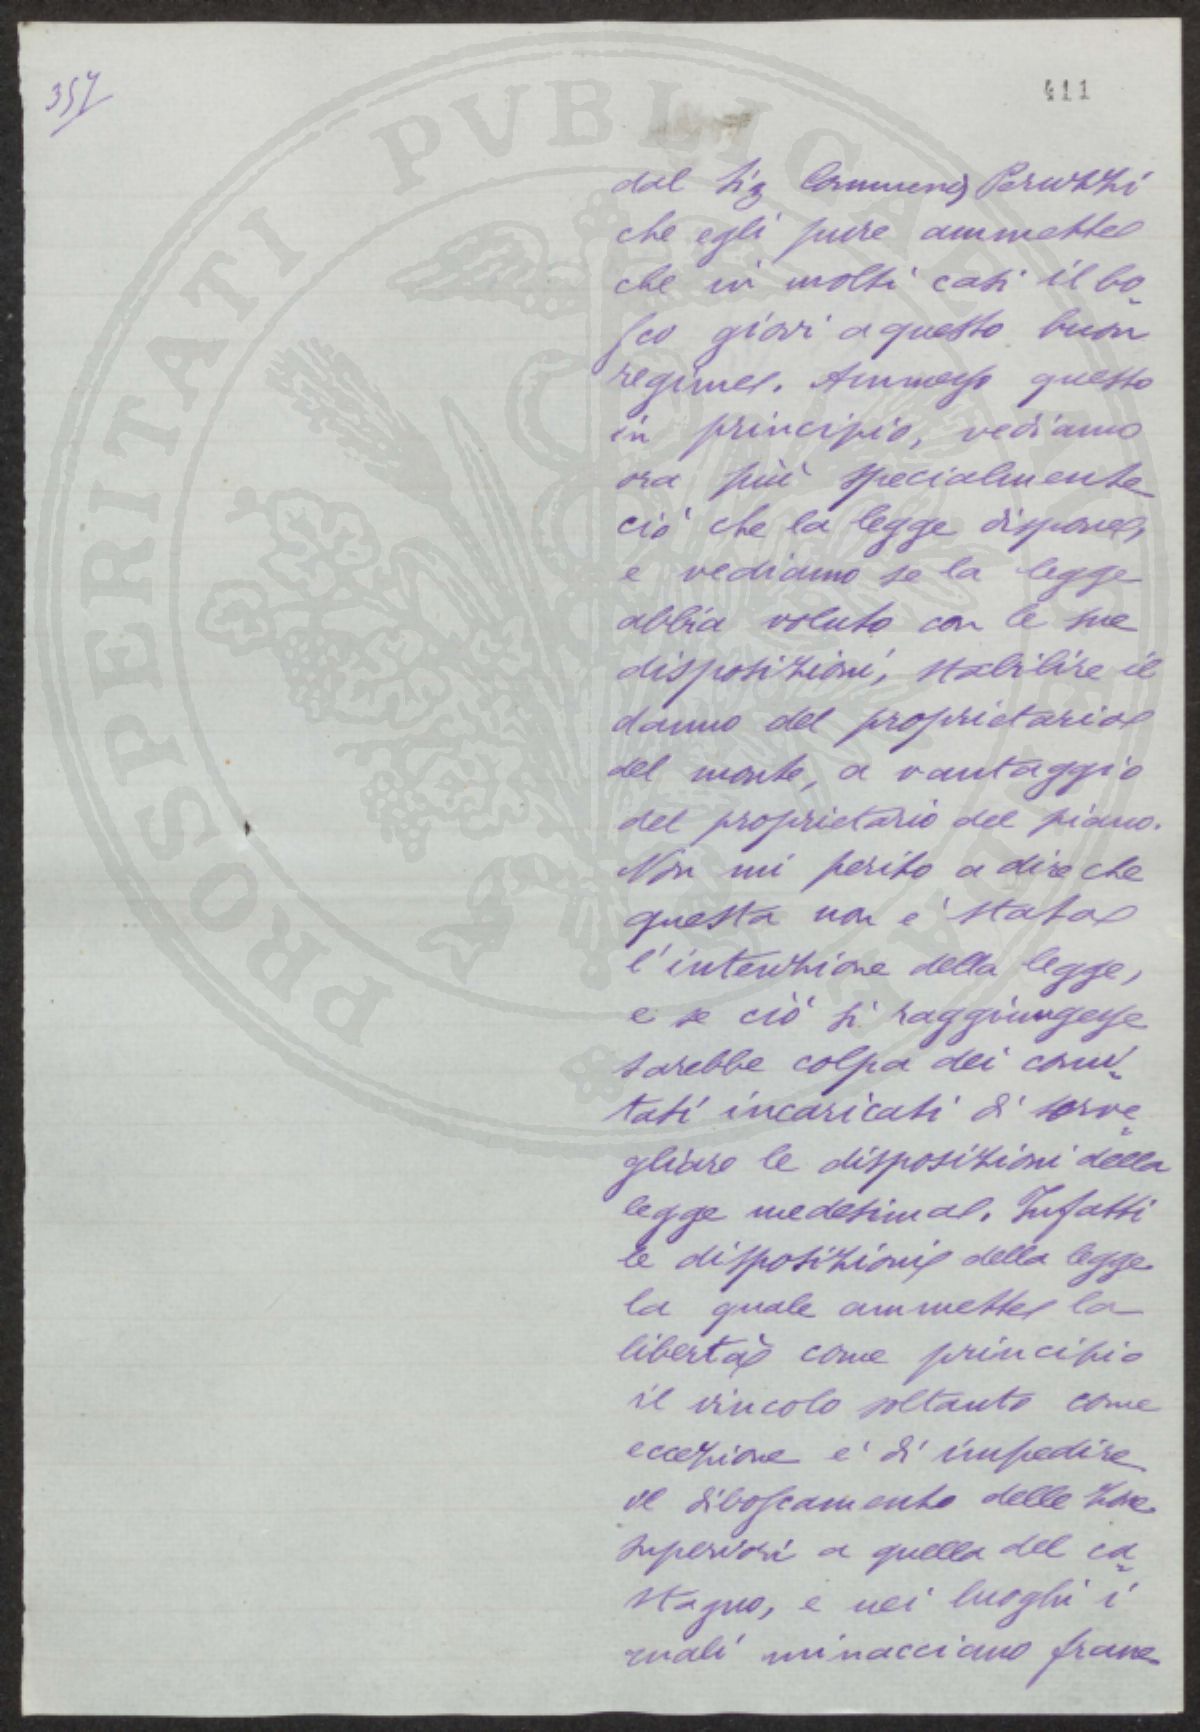 357
411
PROSPERITATI PVBLICAE
dal Sig Commend Peruzzi
che egli pure ammette
che in molti casi il bo-
sco giovi a questo buon
regime. Ammesso questo
in principio, vediamo
ora più specialmente
ciò che la legge dispone,
e vediamo se la legge
abbia voluto con le sue
disposizioni, stabilire il
danno del proprietario
del monte, a vantaggio
del proprietario del piano.
Non mi perito a dire che
questa non è stata
l'intenzione della legge,
e se ciò si raggiungesse
sarebbe colpa dei comi-
tati incaricati di sorve-
gliare le disposizioni della
legge medesima. Infatti
le disposizioni della legge
la quale ammette la
libertà come principio
il vincolo soltanto come
eccezione è di impedire
il diboscamento delle zone
superiori a quella del ca-
stagno, e nei luoghi i
quali minacciano frane